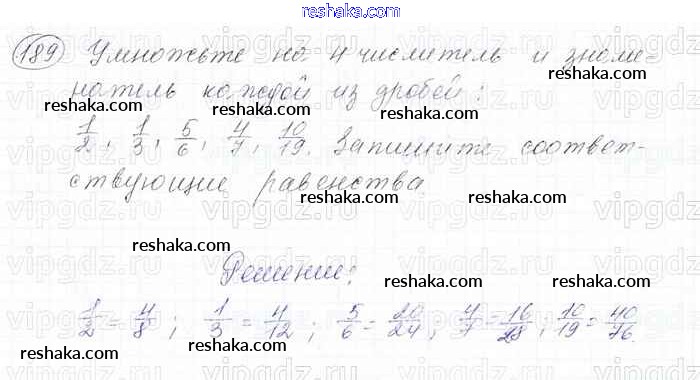 reshaka.com
189 Умножьте на 4 числитель и знаме-
reshaka.com
натель каждой из дробей:
reshaka.com reshaka.com
1/2, 1/3, 5/6, 4/7, 10/19. Запишите соответ-
reshaka.com
ствующие равенства
reshaka.com
vipgdz.ru vipgdz.ru vipgdz.ru vipgdz.ru
reshaka.com reshaka.com
Решение:
reshaka.com reshaka.com
1/2 = 4/8; 1/3 = 4/12; 5/6 = 20/24; 4/7 = 16/28; 10/19 = 40/76.
reshaka.com reshaka.com
reshaka.com